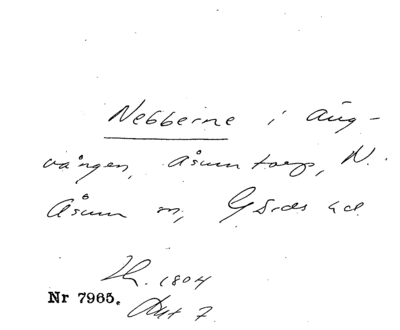 Nebberne i Äng-
vången, Åsumtorp, N.
Åsum sn, Gärds hd.
1804
Nr 7965. Akt 7